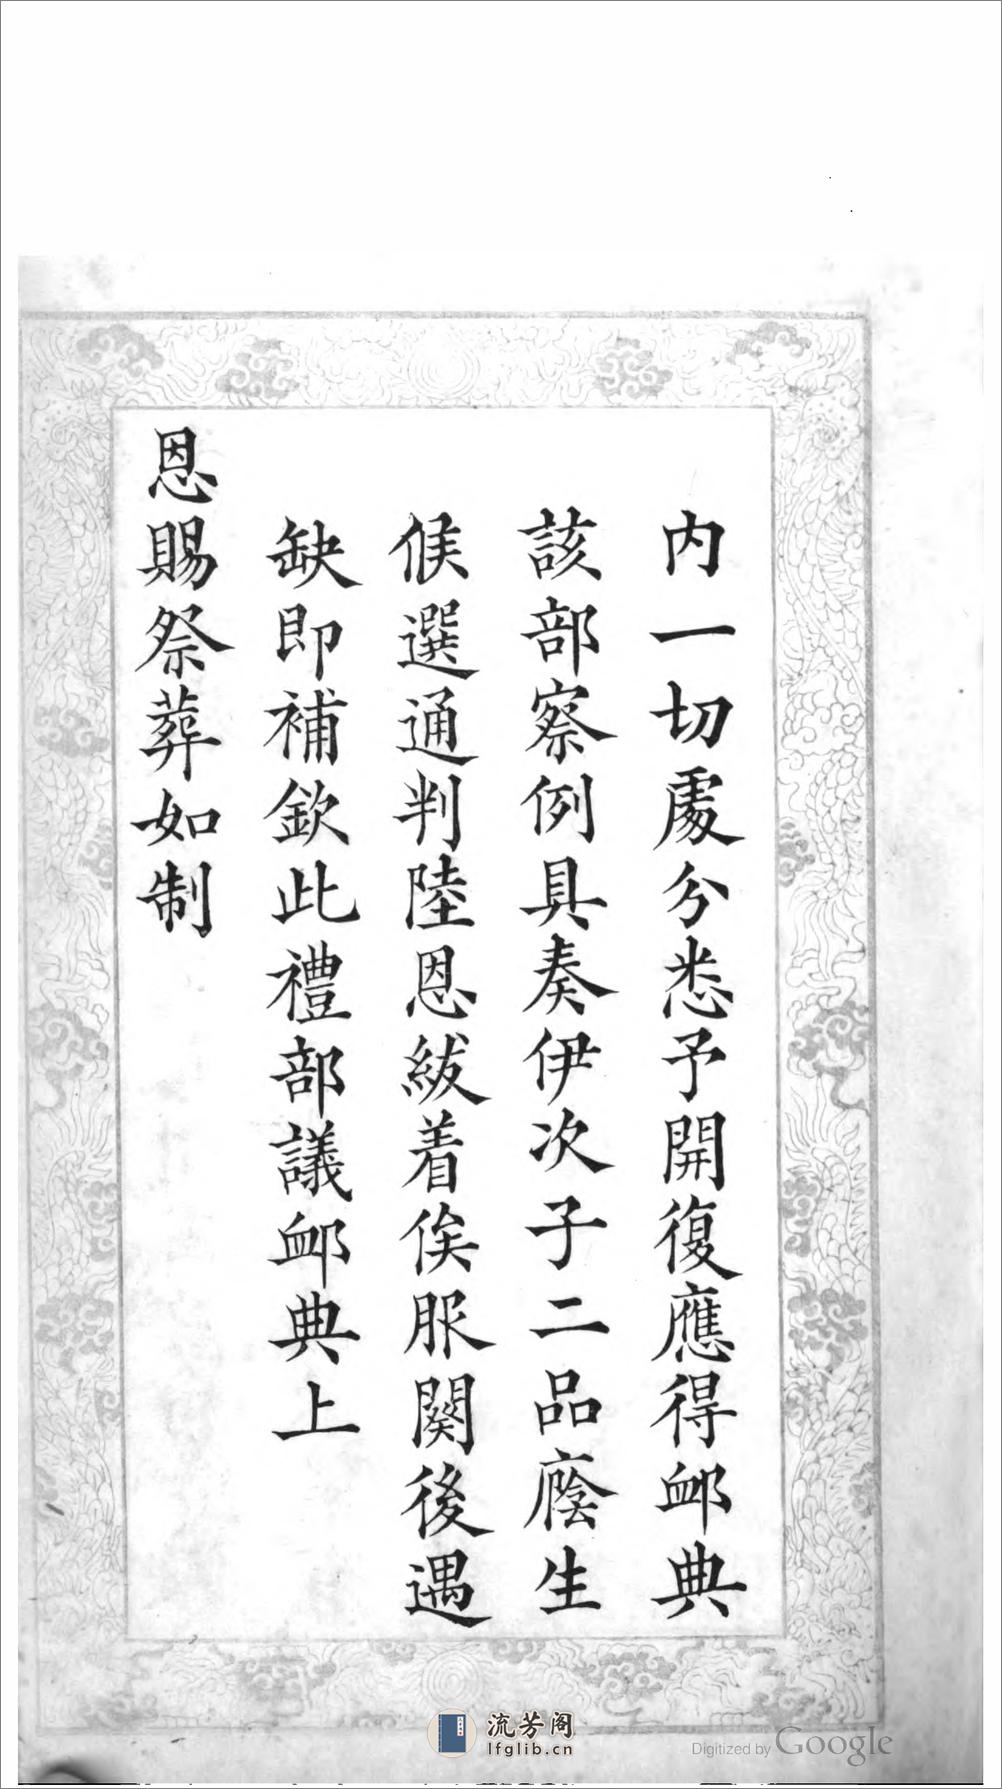 内一切處分悉予開復應得卹典
該部察例具奏伊次子二品廕生
候選通判陸恩紱着俟服闋後遇
缺即補欽此禮部議卹典上
恩賜祭葬如制
流芳阁
lfglib.cn
Digitized by Google